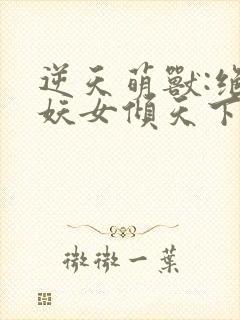 逆天萌獸:
妖女傾天下
微微一葉